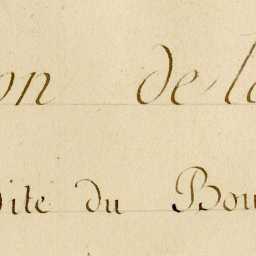 on de la
dite du Bou